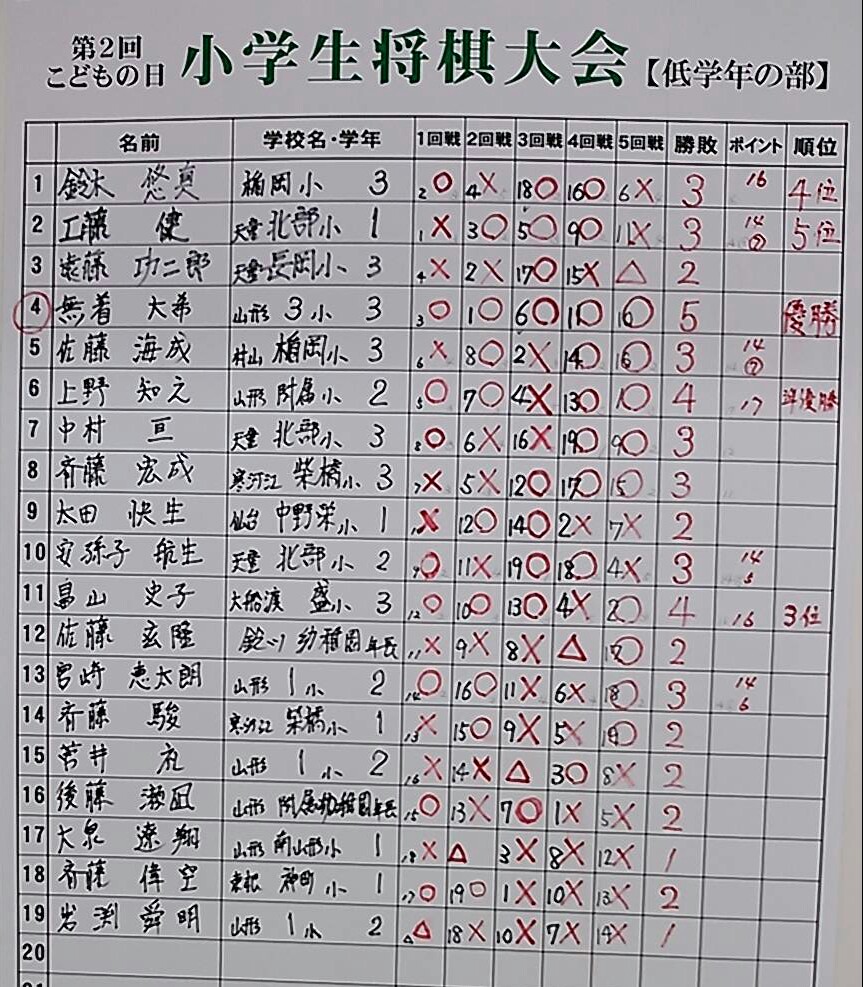 第2回
こどもの日 小学生将棋大会【低学年の部】
名前 学校名・学年 1回戦 2回戦 3回戦 4回戦 5回戦 勝敗 ポイント 順位
1 鈴木 悠真 楯岡小 3 2○ 4× 18○ 16○ 6× 3 16 4位
2 工藤 健 天童北部小 1 1× 3○ 5○ 9○ 11× 3 14 ⑦ 5位
3 遠藤 功二郎 天童長岡小 3 4× 2× 17○ 15× △ 2
4 無着 大希 山形3小 3 3○ 1○ 6○ 11○ 10○ 5 優勝
5 佐藤 海成 村山楯岡小 3 6× 8○ 2× 14○ 16○ 3 14 ⑦
6 上野 知之 山形附属小 2 5○ 7○ 4× 13○ 1○ 4 17 準優勝
7 中村 亘 天童北部小 3 8○ 6× 16× 19○ 9○ 3
8 斉藤 宏成 寒河江柴橋小 3 7× 5× 12○ 17○ 15○ 3
9 太田 快生 仙台中野栄小 1 10× 12○ 14○ 2× 7× 2
10 安孫子 航生 天童北部小 2 9○ 11× 19○ 18○ 4× 3 14 5
11 畠山 史子 大船渡盛小 3 12○ 10○ 13○ 4× 2○ 4 16 3位
12 佐藤 玄隆 鈴川幼稚園年長 11× 9× 8× △ 17○ 2
13 宮崎 恵太朗 山形1小 2 14○ 16○ 11× 6× 18○ 3 14 6
14 斉藤 駿 寒河江柴橋小 1 13× 15○ 9× 5× 19○ 2
15 菅井 山形1小 2 16× 14× △ 3○ 8× 2
16 後藤 山形附属幼稚園年長 15○ 13× 7○ 1× 5× 2
17 大泉 遼翔 山形南山形小 1 18× △ 3× 8× 12× 1
18 斉藤 偉空 東根神町小 1 17○ 19○ 1× 10× 13× 2
19 岩渕 舜明 山形1小 2 △ 18× 10× 7× 14× 1
20